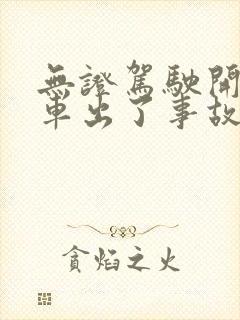 無證駕駛開
車出了事故
貪焰之火